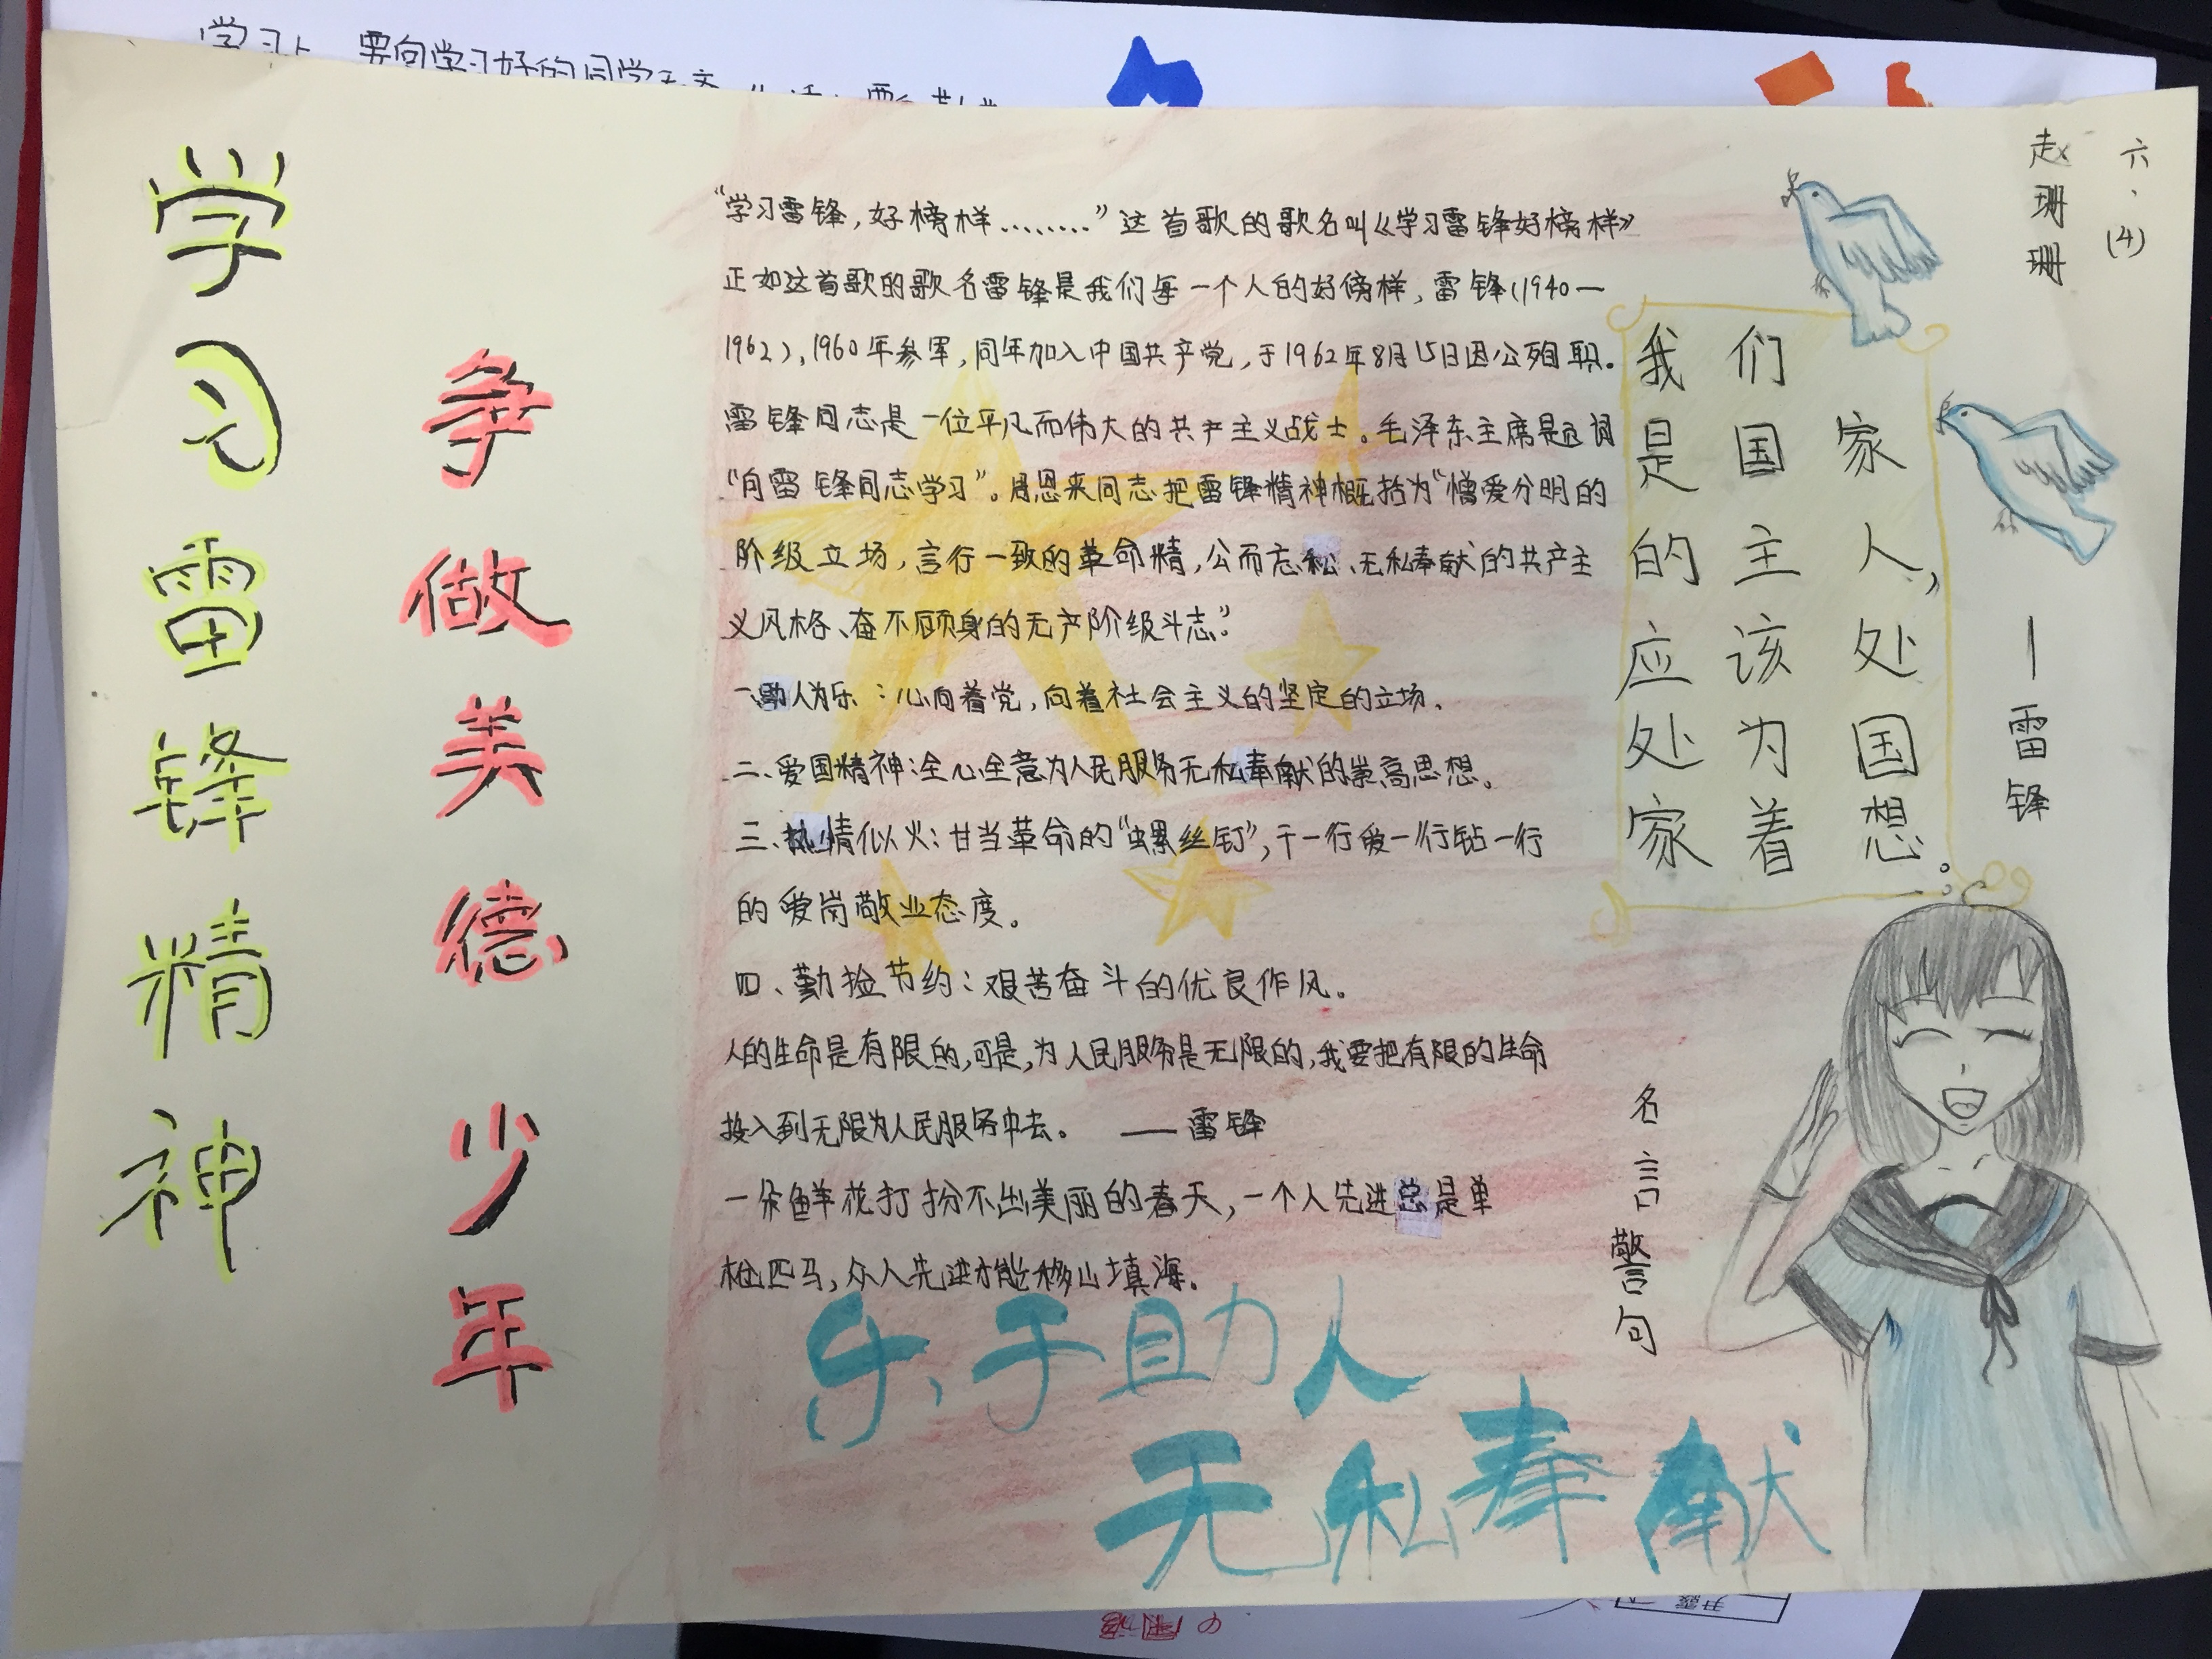 学习上,要向学习好的同学
学习雷锋精神
争做美德少年
“学习雷锋,好榜样………”这首歌的歌名叫《学习雷锋好榜样》
正如这首歌的歌名雷锋是我们每一个人的好榜样,雷锋(1940—
1962),1960年参军,同年加入中国共产党,于1962年8月15日因公殉职.
雷锋同志是一位平凡而伟大的共产主义战士。毛泽东主席是题词
“向雷锋同志学习”。周恩来同志把雷锋精神概括为“憎爱分明的
阶级立场,言行一致的革命精,公而忘私、无私奉献的共产主
义风格、奋不顾身的无产阶级斗志”.
一、助人为乐:心向着党,向着社会主义的坚定的立场.
二、爱国精神:全心全意为人民服务无私奉献的崇高思想。
三、热情似火:甘当革命的“螺丝钉”,干一行爱一行钻一行
的爱岗敬业态度。
四、勤捡节约:艰苦奋斗的优良作风。
人的生命是有限的,可是,为人民服务是无限的,我要把有限的生命
投入到无限为人民服务中去。 ——雷锋
一朵鲜花打扮不出美丽的春天,一个人先进总是单
枪匹马,众人先进才能移山填海。
乐于助人
无私奉献
我们
是国家
的主人,
应该处
处为国
家着想。
—雷锋
名言警句
六.(4)
赵珊珊